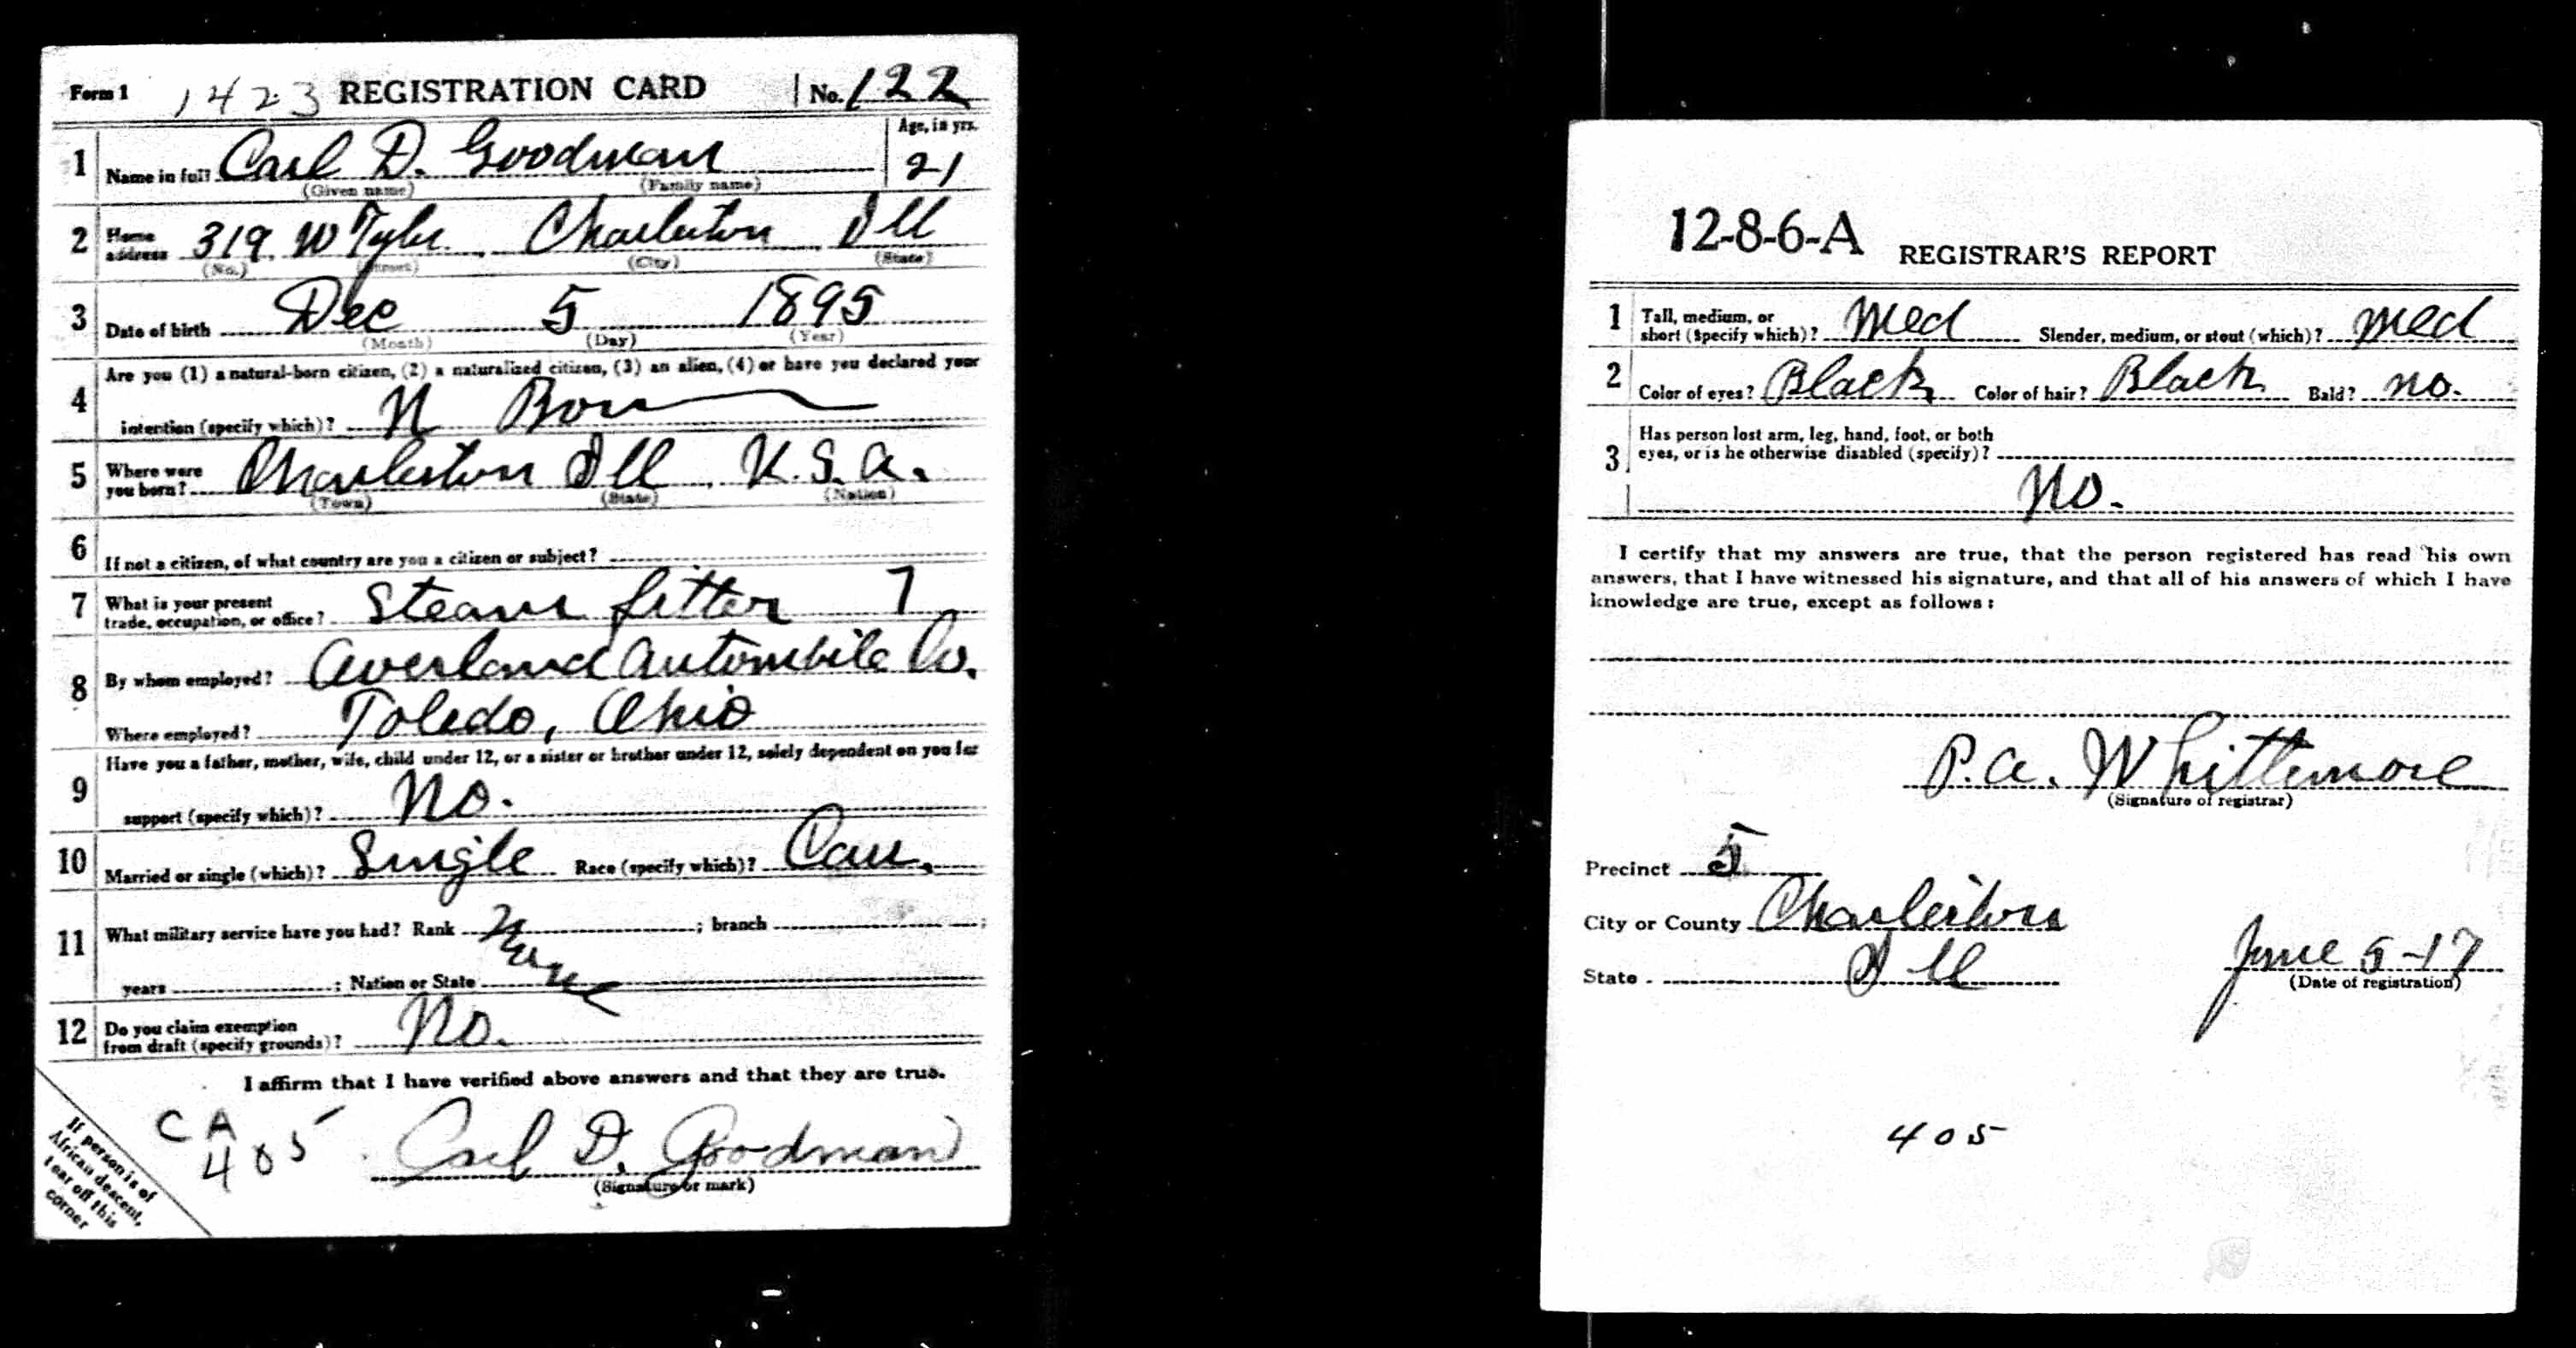 Form 1 1423 REGISTRATION CARD No. 122
1 Name in full Carl D. Goodman Age, in yrs. 21
(Given name) (Family name)
2 Home address 319 W Tyler Charleston Ill
(No.) (Street) (City) (State)
3 Date of birth Dec 5 1895
(Month) (Day) (Year)
4 Are you (1) a natural-born citizen, (2) a naturalized citizen, (3) an alien, (4) or have you declared your
intention (specify which)? N Born
5 Where were you born? Charleston Ill U.S.A.
(Town) (State) (Nation)
6 If not a citizen, of what country are you a citizen or subject?
7 What is your present trade, occupation, or office? Steam fitter 7
8 By whom employed? Overland Automobile Co.
Where employed? Toledo, Ohio
9 Have you a father, mother, wife, child under 12, or a sister or brother under 12, solely dependent on you for
support (specify which)? No.
10 Married or single (which)? Single Race (specify which)? Cau.
11 What military service have you had? Rank None ; branch ;
years ; Nation or State
12 Do you claim exemption from draft (specify grounds)? No.
I affirm that I have verified above answers and that they are true.
C A
405
Carl D. Goodman
(Signature or mark)
If person is of
African descent,
tear off this
corner
12-8-6-A REGISTRAR'S REPORT
1 Tall, medium, or short (specify which)? Med Slender, medium, or stout (which)? Med
2 Color of eyes? Black Color of hair? Black Bald? No.
3 Has person lost arm, leg, hand, foot, or both
eyes, or is he otherwise disabled (specify)?
No.
I certify that my answers are true, that the person registered has read his own
answers, that I have witnessed his signature, and that all of his answers of which I have
knowledge are true, except as follows:
P.A. Whittemore
(Signature of registrar)
Precinct 5
City or County Charleston
State Ill June 5-17
(Date of registration)
405